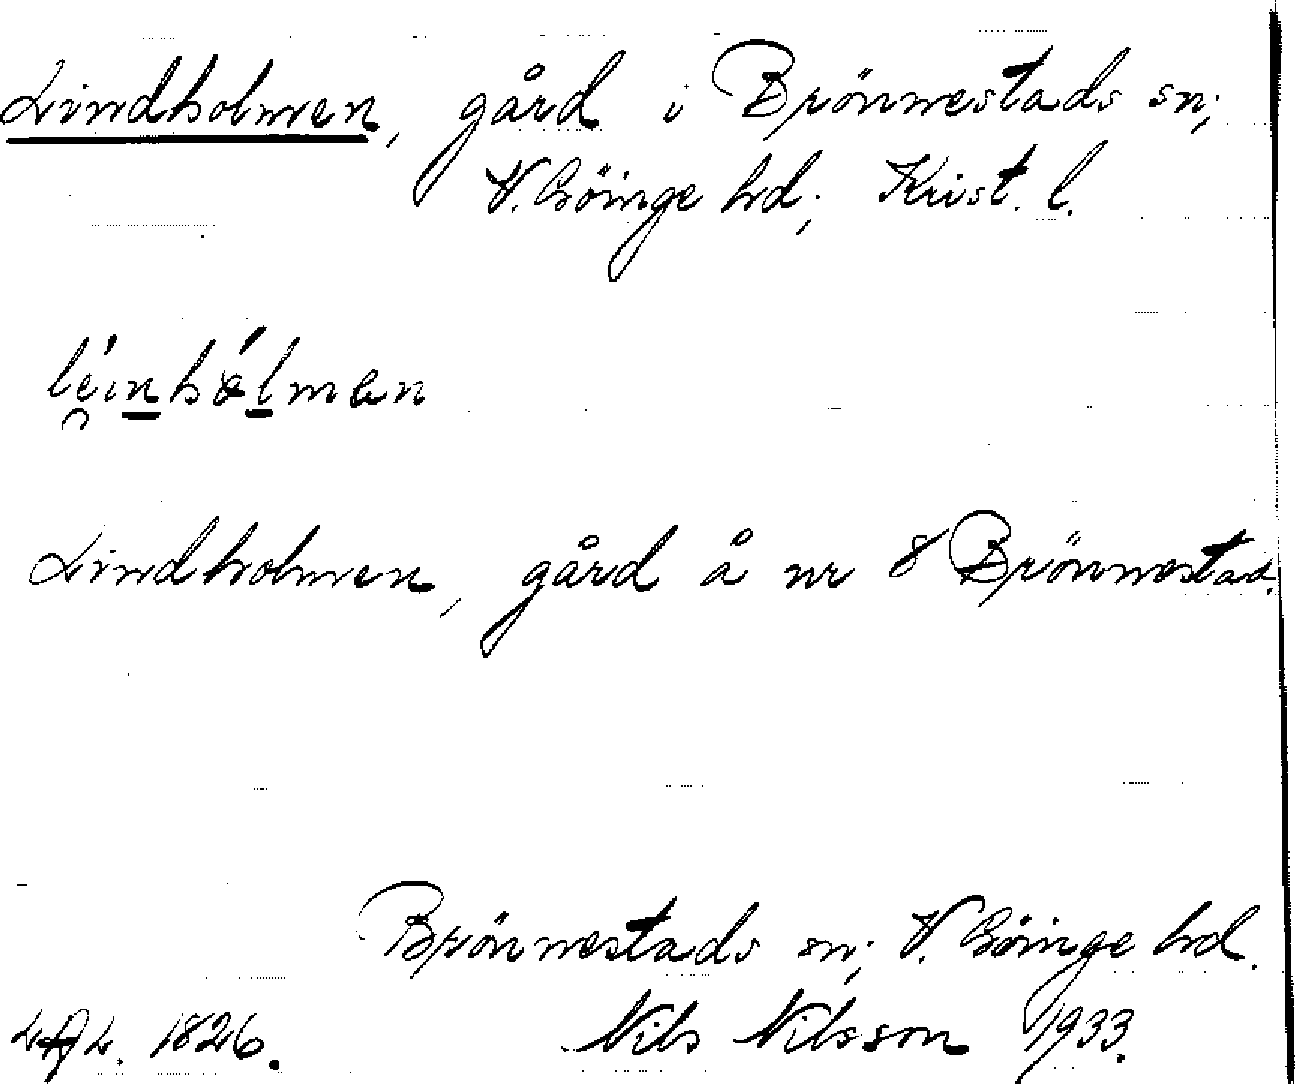 Lindholmen, gård i Brönnestads sn;
V. Göinge hd; Krist. l.
Lindholmen, gård å nr 8 Brönnestad.
Brönnestads sn; V. Göinge hd.
1826. Nils Nilsson 1933.